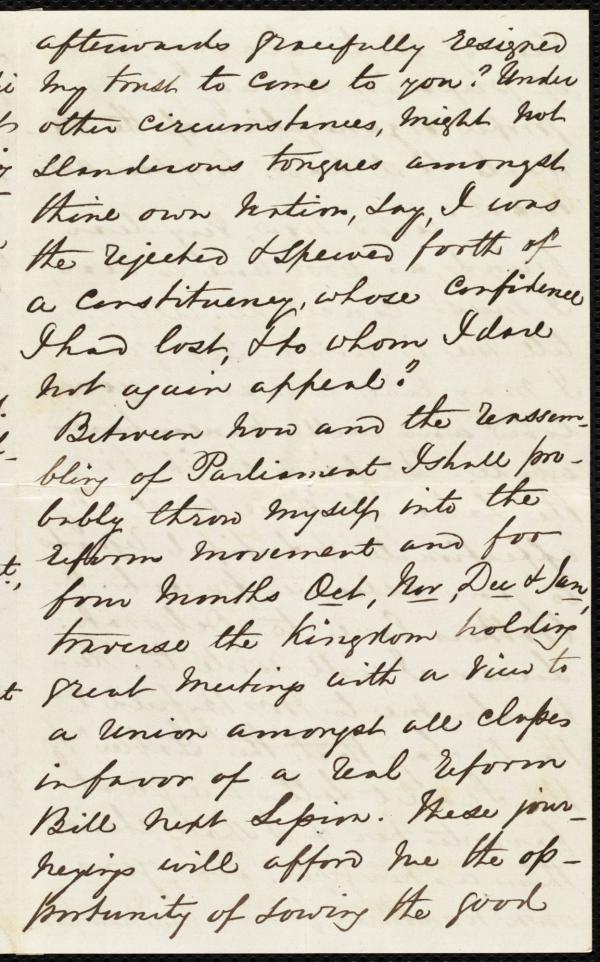 afterwards gracefully resigned
my trust to come to you? Under
other circumstances, might not
slanderous tongues amongst
thine own nation, say, I was
the rejected & spewed forth of
a constituency, whose confidence
I had lost, & to whom I dare
not again appeal?
Between now and the reassem-
bling of Parliament I shall pro-
bably throw myself into the
reform movement and for
four months Oct, Nov, Dec & Jan,
traverse the Kingdom holding
great meetings with a view to
a union amongst all classes
in favor of a real reform
Bill next Session. These jour-
neyings will afford me the op-
portunity of sowing the good